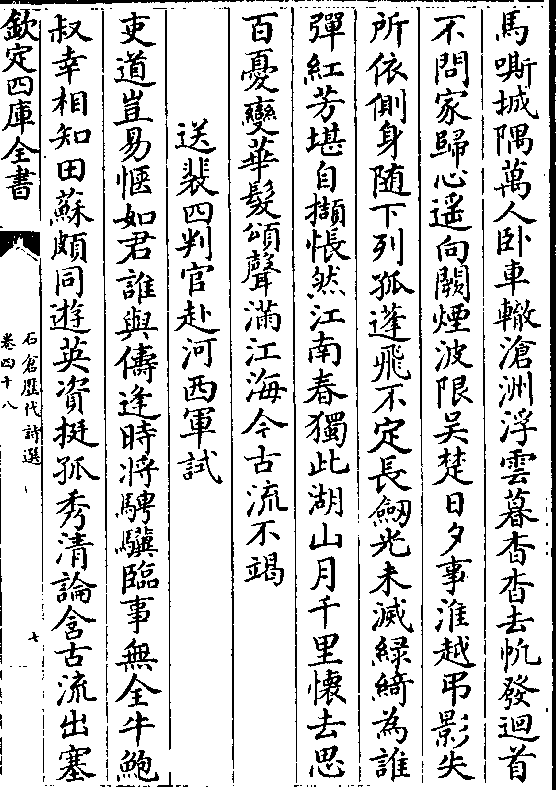 馬嘶城隅萬人卧車轍滄洲浮雲暮杳杳去帆發迴首
不問家歸心遥向闕煙波限吳楚日夕事淮越弔影失
所依側身随下列孤蓬飛不定長劒光未滅綠綺為誰
彈紅芳堪自擷悵然江南春獨此湖山月千里懷去思
百憂變華髮頌聲滿江海今古流不竭
送裴四判官赴河西軍試
吏道豈易愜如君誰與儔逢時将騁驥臨事無全牛鮑
叔幸相知田蘇頗同遊英資挺孤秀清論含古流出塞
石倉歷代詩選
卷四十八
七
欽定四庫全書